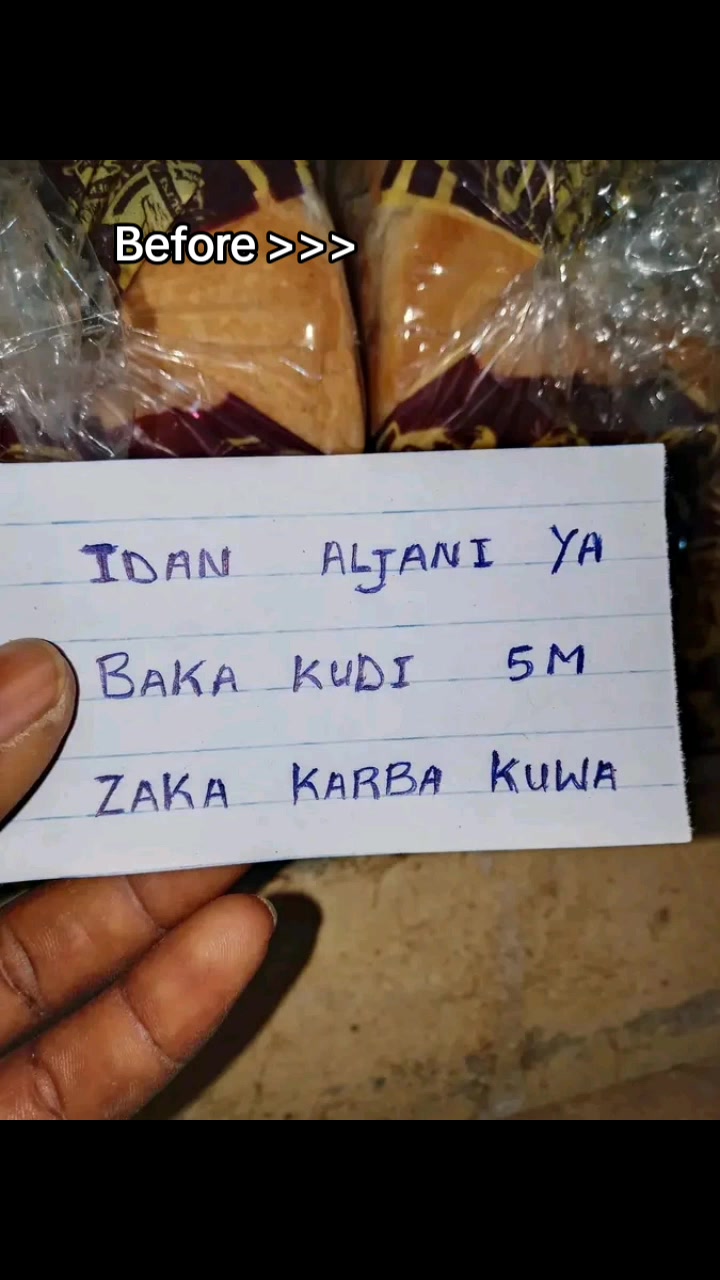 Before >>>
IDAN ALJANI YA
BAKA KUDI 5M
ZAKA KARBA KUWA